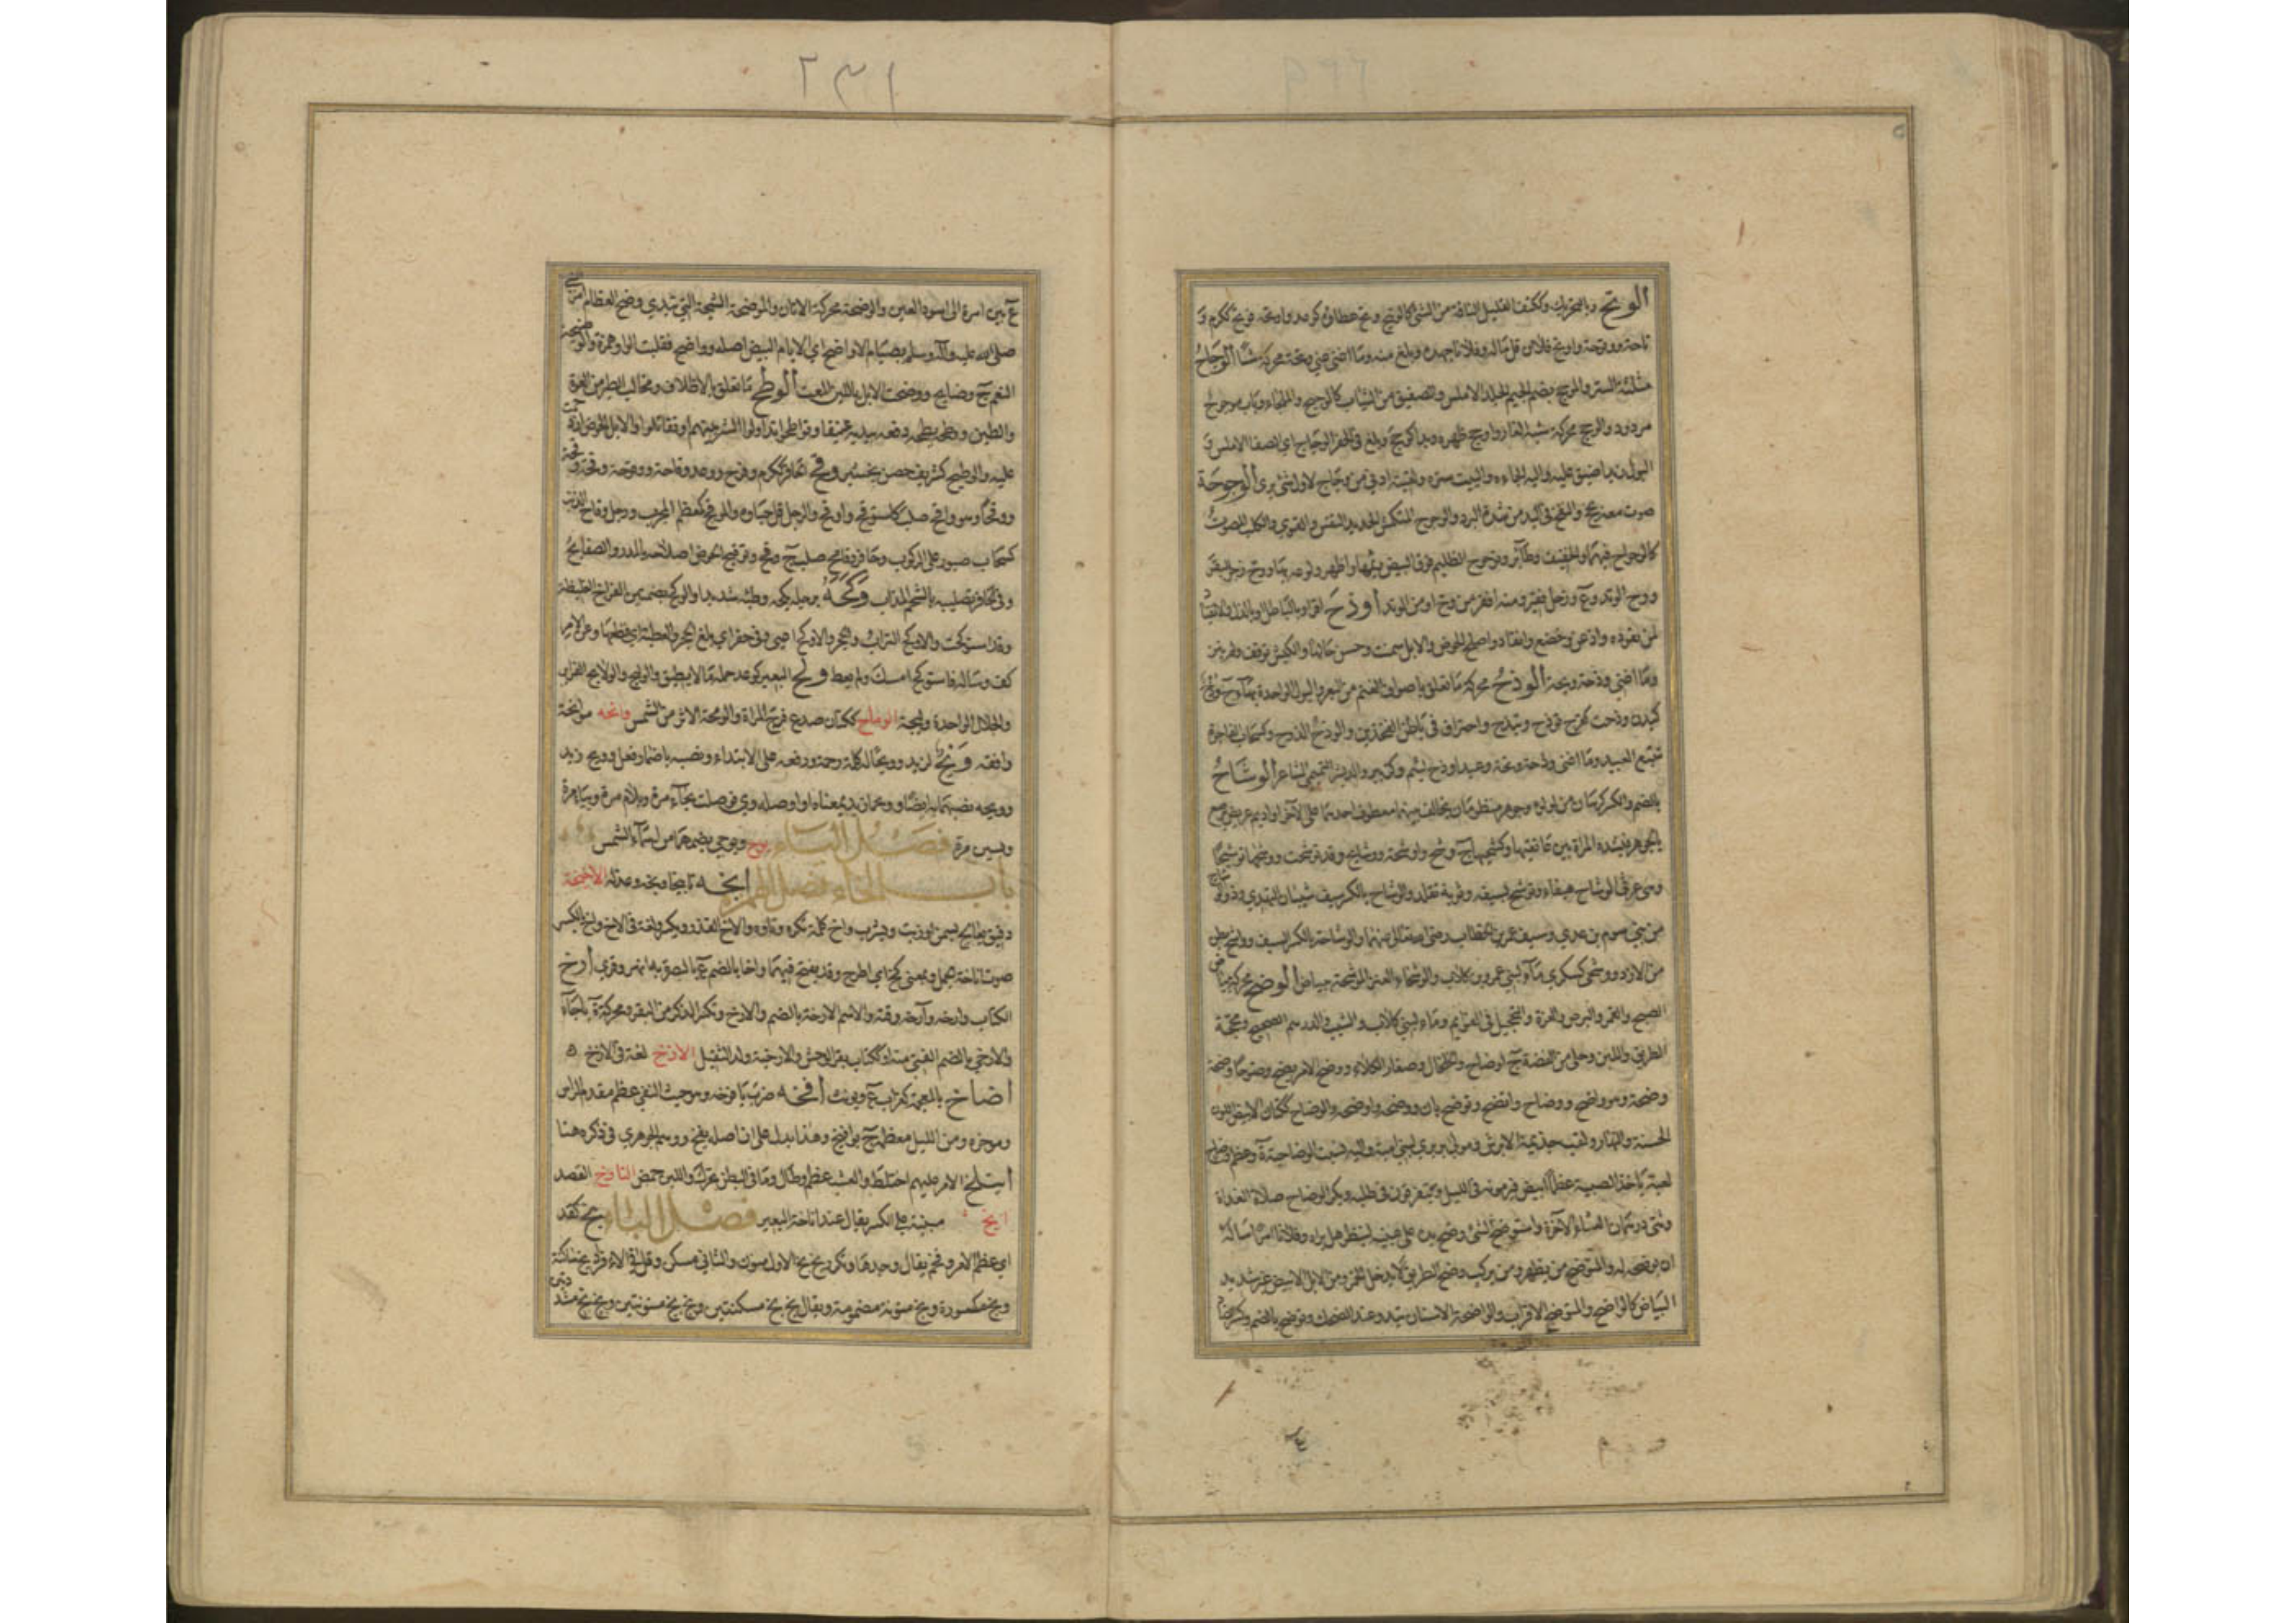 الوتح وبالتحريك وككتف القليل التافه من الشئ كالوتيح وتح عطاؤه كوعد واوتحه فوتح ككرم و
تاحة ووتحة واوتح فلان قل ماله وفلانا جهده وبلغ منه وما اغنى عني وتحة محركة شيئا الوجاح
مثلثة الستر والموجح بضم الجيم الجلد الاملس والصفيق من الثياب كالوجيح والملجاء وباب موجوح
مردود والوجح محركة شبه الغار واوجح ظهر وبدا كوجح وبلغ في الحفر الوجاح اي الصفا الاملس و
البول زيدا ضيق عليه واليه الجاءه والبيت ستره ولقيته ادنى من وجاح لاول شئ يرى الوحوحة
صوت معه بحح والنفخ في اليد من شدة البرد والوحوح المنكمش الحديد النفس والقوي والكلب المصوت
كالوحواح فيهما والخفيف وطائر وتوحوح الظليم فوق البيض رئمها واظهر ولوعه بها ووح زجر للبقر
ووح الوتد وع ورجل فقير ومنه افقر من وح او من الوتد اودح اقر او بالباطل وبالذل والانقياد
لمن يقوده واذعن وخضع وانقاد واصلح الحوض والابل سمنت وحسن حالها والكبش توقف ولم ينز
وما اغنى ودحة وتحة الوذح محركة ما تعلق باصواف الغنم من البعر والبول الواحدة بهاء ج وذح
كبدن وذحت كفرح توذح وتيذح واحتراق في باطن الفخذين والوذح الذوح وكسحاب الفاجرة
تتبع العبيد وما اغنى وذحة وتحة وعبد اوذح لئيم وكزبير والد بشر التميمي الشاعر الوشاح
بالضم والكسر كرسان من لؤلؤ وجوهر منظومان يخالف بينهما معطوف احدهما على الآخر او اديم عريض يرصع
بالجوهر تشده المراة بين عاتقيها وكشحيها ج وشح واوشحة ووشائح وقد توشحت ووشحتها توشيحا
وهي غرثى الوشاح هيفاء وتوشح بسيفه وثوبه تقلد والوشاح بالكسر سيف شيبان النهدي وذو الوشاح
من بني سوم بن عدي وسيف عمر بن الخطاب رضي الله تعالى عنهما والوشاحة بالكسر السيف وواشح بطن
من الازد ووشحى كسكرى ماء لبني عمرو بن كلاب والوشحاء العنز الموشحة ببياض الوضح محركة بياض
الصبح والقمر والبرص والغرة والتحجيل في القوائم وماء لبني كلاب والشيب والدرهم الصحيح ومحجة
الطريق واللبن وحلي من الفضة ج اوضاح والخلخال وصغار الكلاء ووضح الامر يضح وضوحا وضحة
وضحة وهو واضح ووضاح واتضح وتوضح بان ووضحه واوضحه والوضاح ككتان الابيض اللون
الحسنة والنهار ولقب جذيمة الابرش ومولى بربري لبني امية واليه نسبت الوضاحية ة وعظم وضاح
لعبة ياخذ الصبية عظما ابيض فيرمونه في الليل ويتفرقون في طلبه وبكر الوضاح صلاة الغداة
وثنى دهمان العشاء الآخرة واستوضح الشئ وضع يده على عينيه لينظر هل يراه وفلانا امرا ساله
ان يوضحه له والمتوضح من يظهر ومن يركب وضح الطريق لا يدخل الخمر ومن الابل الابيض غير شديد
البياض كالواضح والمتوضح الاقراب والواضحة الاسنان تبدو عند الضحك وتوضح بالضم وكسر الضاد
٢٣١
ع بين امرة الى اسود العين والوضحة محركة الاتان والموضحة الشجة التي تبدي وضح العظام امر النبي
صلى الله عليه وآله وسلم بصيام الاواضح اي الايام البيض اصله وواضح فقلبت الواو همزة والوضيحة
النعم ج وضايح ووضحت الابل باللبن المعت الوطح ما تعلق بالاظلاف ومخالب الطير من العرة
والطين ووطحه يطحه دفعه بيديه عنيفا وتواطحوا تداولوا الشر بينهم او تقاتلوا والابل الحوض ازدحمت
عليه والوطيح كشريف حصن بخيبر وقح الحافر ككرم وفرح ووعد وقاحة ووقوحة وقحة وقحة
ووقحا وهو واقح صلب كاستوقح واوقح والرجل قل حياؤه والموقح كمعظم المجرب ورجل وقاح الذنب
كسحاب صبور على الركوب وحافر وقاح صلب ج وقح وتوقيح الحوض اصلاحه بالمدر والصفايح
وفي الحافر تصليبه بالشحم المذاب وكحه برجله يكحه وطئه شديدا والوكح بضمتين الفراخ الغليظة
وقد استوكحت والاوكح التراب والحجر والاوكح اعيى وفي حفره اي بلغ الحجر والعطية اي قطعها وعن الامر
كف وساله فاستوكح امسك ولم يعط ولح البعير كوعد حمله ما لا يطيق والوليح والولايح الغراير
والجلال الواحدة وليحة الوماح ككتان صدع فرج المراة والومحة الاثر من الشمس وانحه موانحة
وافقه ويح لزيد وويحا له كلمة رحمة ورفعه على الابتداء ونصبه باضمار فعل وويح زيد
وويحه نصبهما به ايضا وويحما زيد بمعناه او اصله وي فوصلت بحاء مرة وبلام مرة وبباء مرة
وبسين مرة فصل الياء يوح ويوحى بضمهما من اسماء الشمس
باب الخاء فصل الهمزة ابخه تابيخا وبخه وعذله الاتيخة
دقيق يعالج بسمن او زيت ويشرب واخ كلمة تكره وتاوه والاخ القذر ويكسر ولغة في الاخ واخ بالكسر
صوت اناخة الجمل وبمعنى كخ اي اطرح وقد يفتح فيهما واخا بالضم ع بالبصرة به انهر وقرى ارخ
الكتاب وارخه وآرخه وقته والاسم الارخة بالضم والارخ وتكسر الذكر من البقر ومحركة ة باجاء
والارخي بالضم الفتي منه او ككتاب بقر الوحش والارخية ولد الثيتل الازخ لغة في الارخ ٥
اضاخ بالمعجمة كغراب ع ويؤنث افخه ضرب يافوخه وهو حيث التقى عظم مقدم الراس
ومؤخره ومن الليل معظمه ج يوافيخ وهذا يدل على ان اصله يفخ ووهم الجوهري في ذكره هنا
ائتلخ الامر عليهم اختلط والعشب عظم وطال وما في البطن تحرك واللبن حمض التاويخ القصد
ايخ مبنية على الكسر يقال عند اناخة البعير فصل الباء بخ كقد
اي عظم الامر وفخم يقال وحدها وتكرر بخ بخ الاول منون والثاني مسكن وقل في الافراد بخ ساكنة
وبخ مكسورة وبخ منونة مضمومة ويقال بخ بخ مسكنتين وبخ بخ منونتين وبخ بخ مشددتين